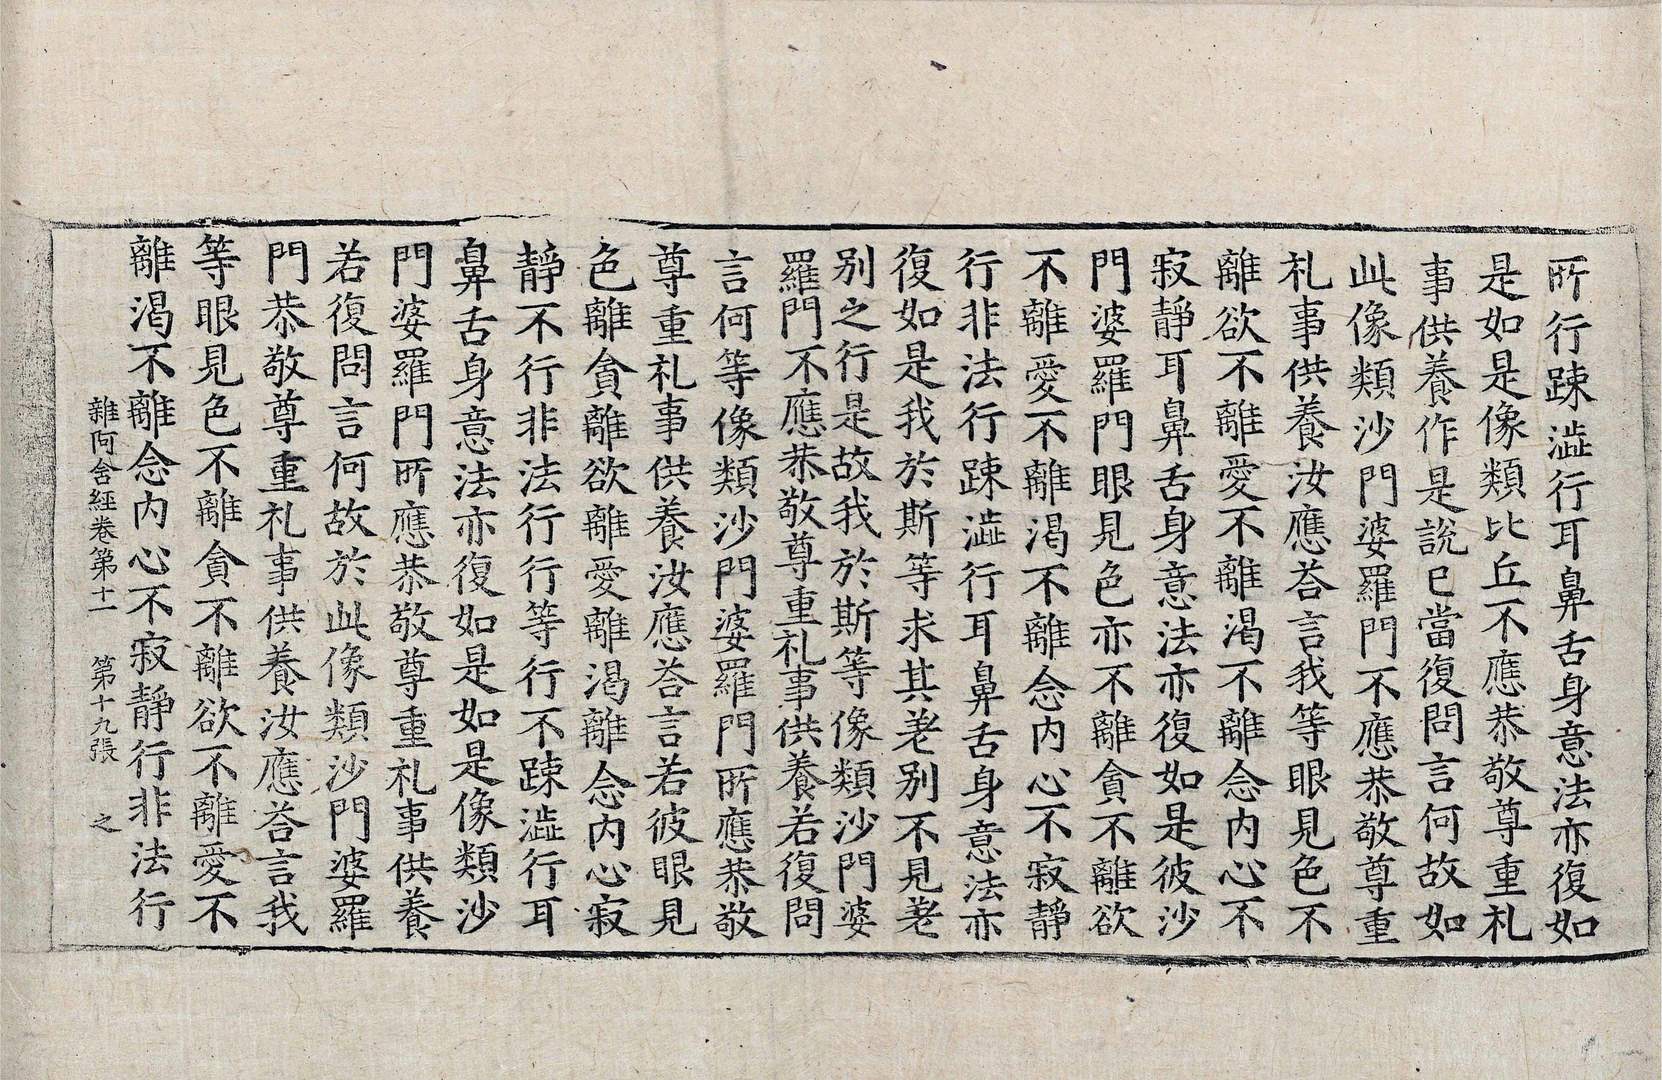 所行踈澁行耳鼻舌身意法亦復如
是如是像類比丘不應恭敬尊重礼
事供養作是說已當復問言何故如
此像類沙門婆羅門不應恭敬尊重
礼事供養汝應荅言我等眼見色不
離欲不離愛不離渴不離念内心不
寂靜耳鼻舌身意法亦復如是彼沙
門婆羅門眼見色亦不離貪不離欲
不離愛不離渴不離念内心不寂靜
行非法行踈澁行耳鼻舌身意法亦
復如是我於斯等求其差别不見差
别之行是故我於斯等像類沙門婆
羅門不應恭敬尊重礼事供養若復問
言何等像類沙門婆羅門所應恭敬
尊重礼事供養汝應荅言若彼眼見
色離貪離欲離愛離渴離念内心寂
靜不行非法行行等行不踈澁行耳
鼻舌身意法亦復如是如是像類沙
門婆羅門所應恭敬尊重礼事供養
若復問言何故於此像類沙門婆羅
門恭敬尊重礼事供養汝應荅言我
等眼見色不離貪不離欲不離愛不
離渴不離念内心不寂靜行非法行
雜阿含經卷第十一 第十九張 之